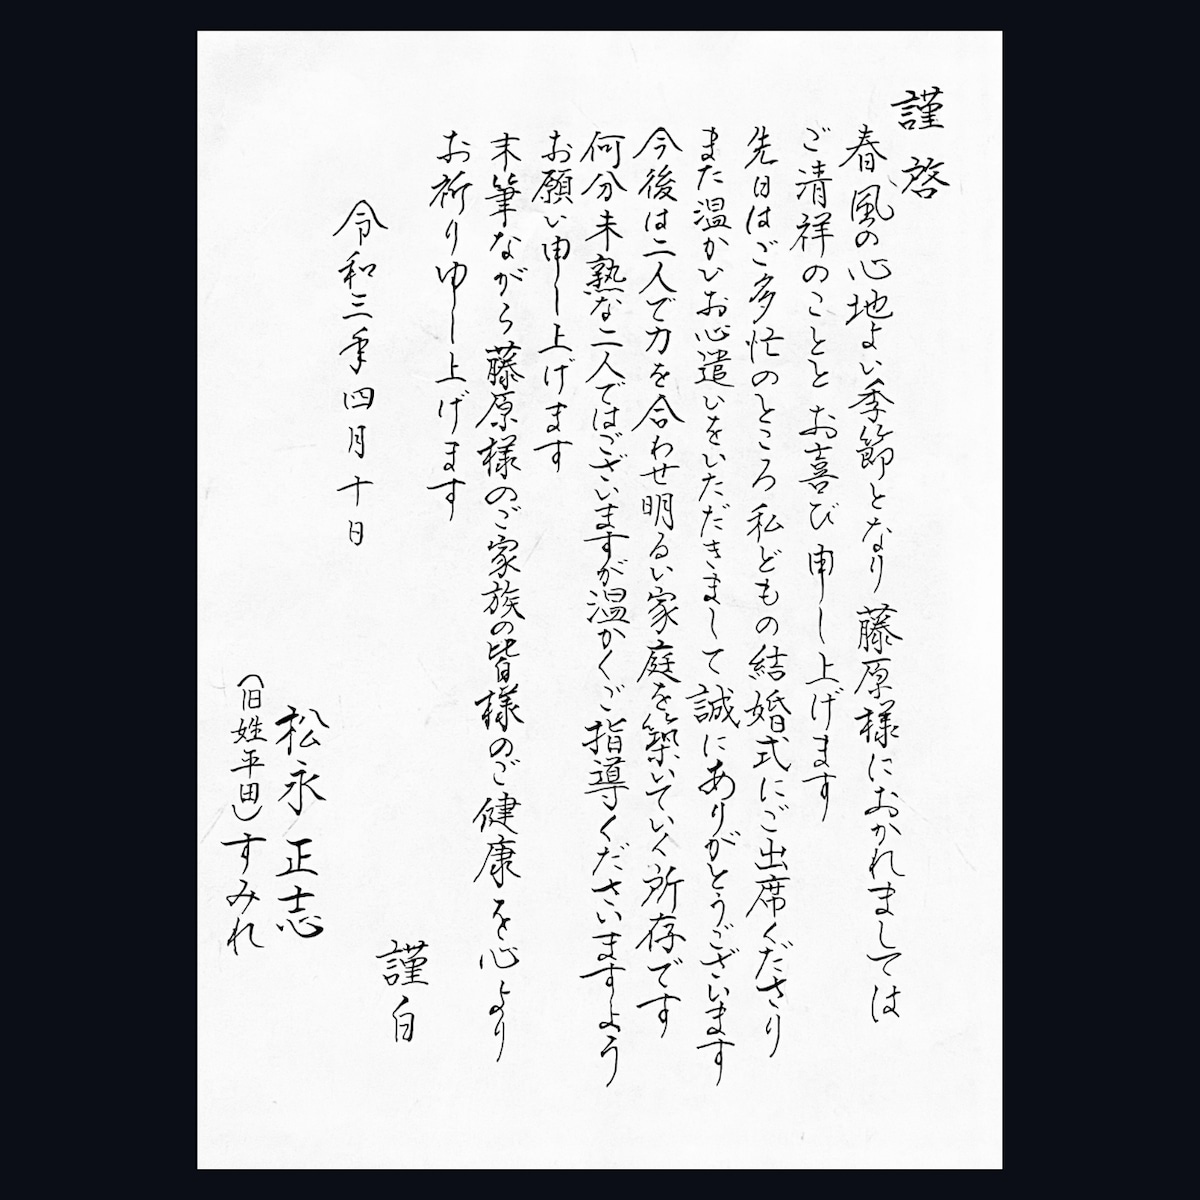 謹啓
春風の心地よい季節となり藤原様におかれましては
ご清祥のこととお喜び申し上げます
先日はご多忙のところ私どもの結婚式にご出席くださり
また温かいお心遣いをいただきまして誠にありがとうございます
今後は二人で力を合わせ明るい家庭を築いていく所存です
何分未熟な二人ではございますが温かくご指導くださいますよう
お願い申し上げます
末筆ながら藤原様のご家族の皆様のご健康を心より
お祈り申し上げます
謹白
令和三年四月十日
松永 正志
(旧姓平田)すみれ